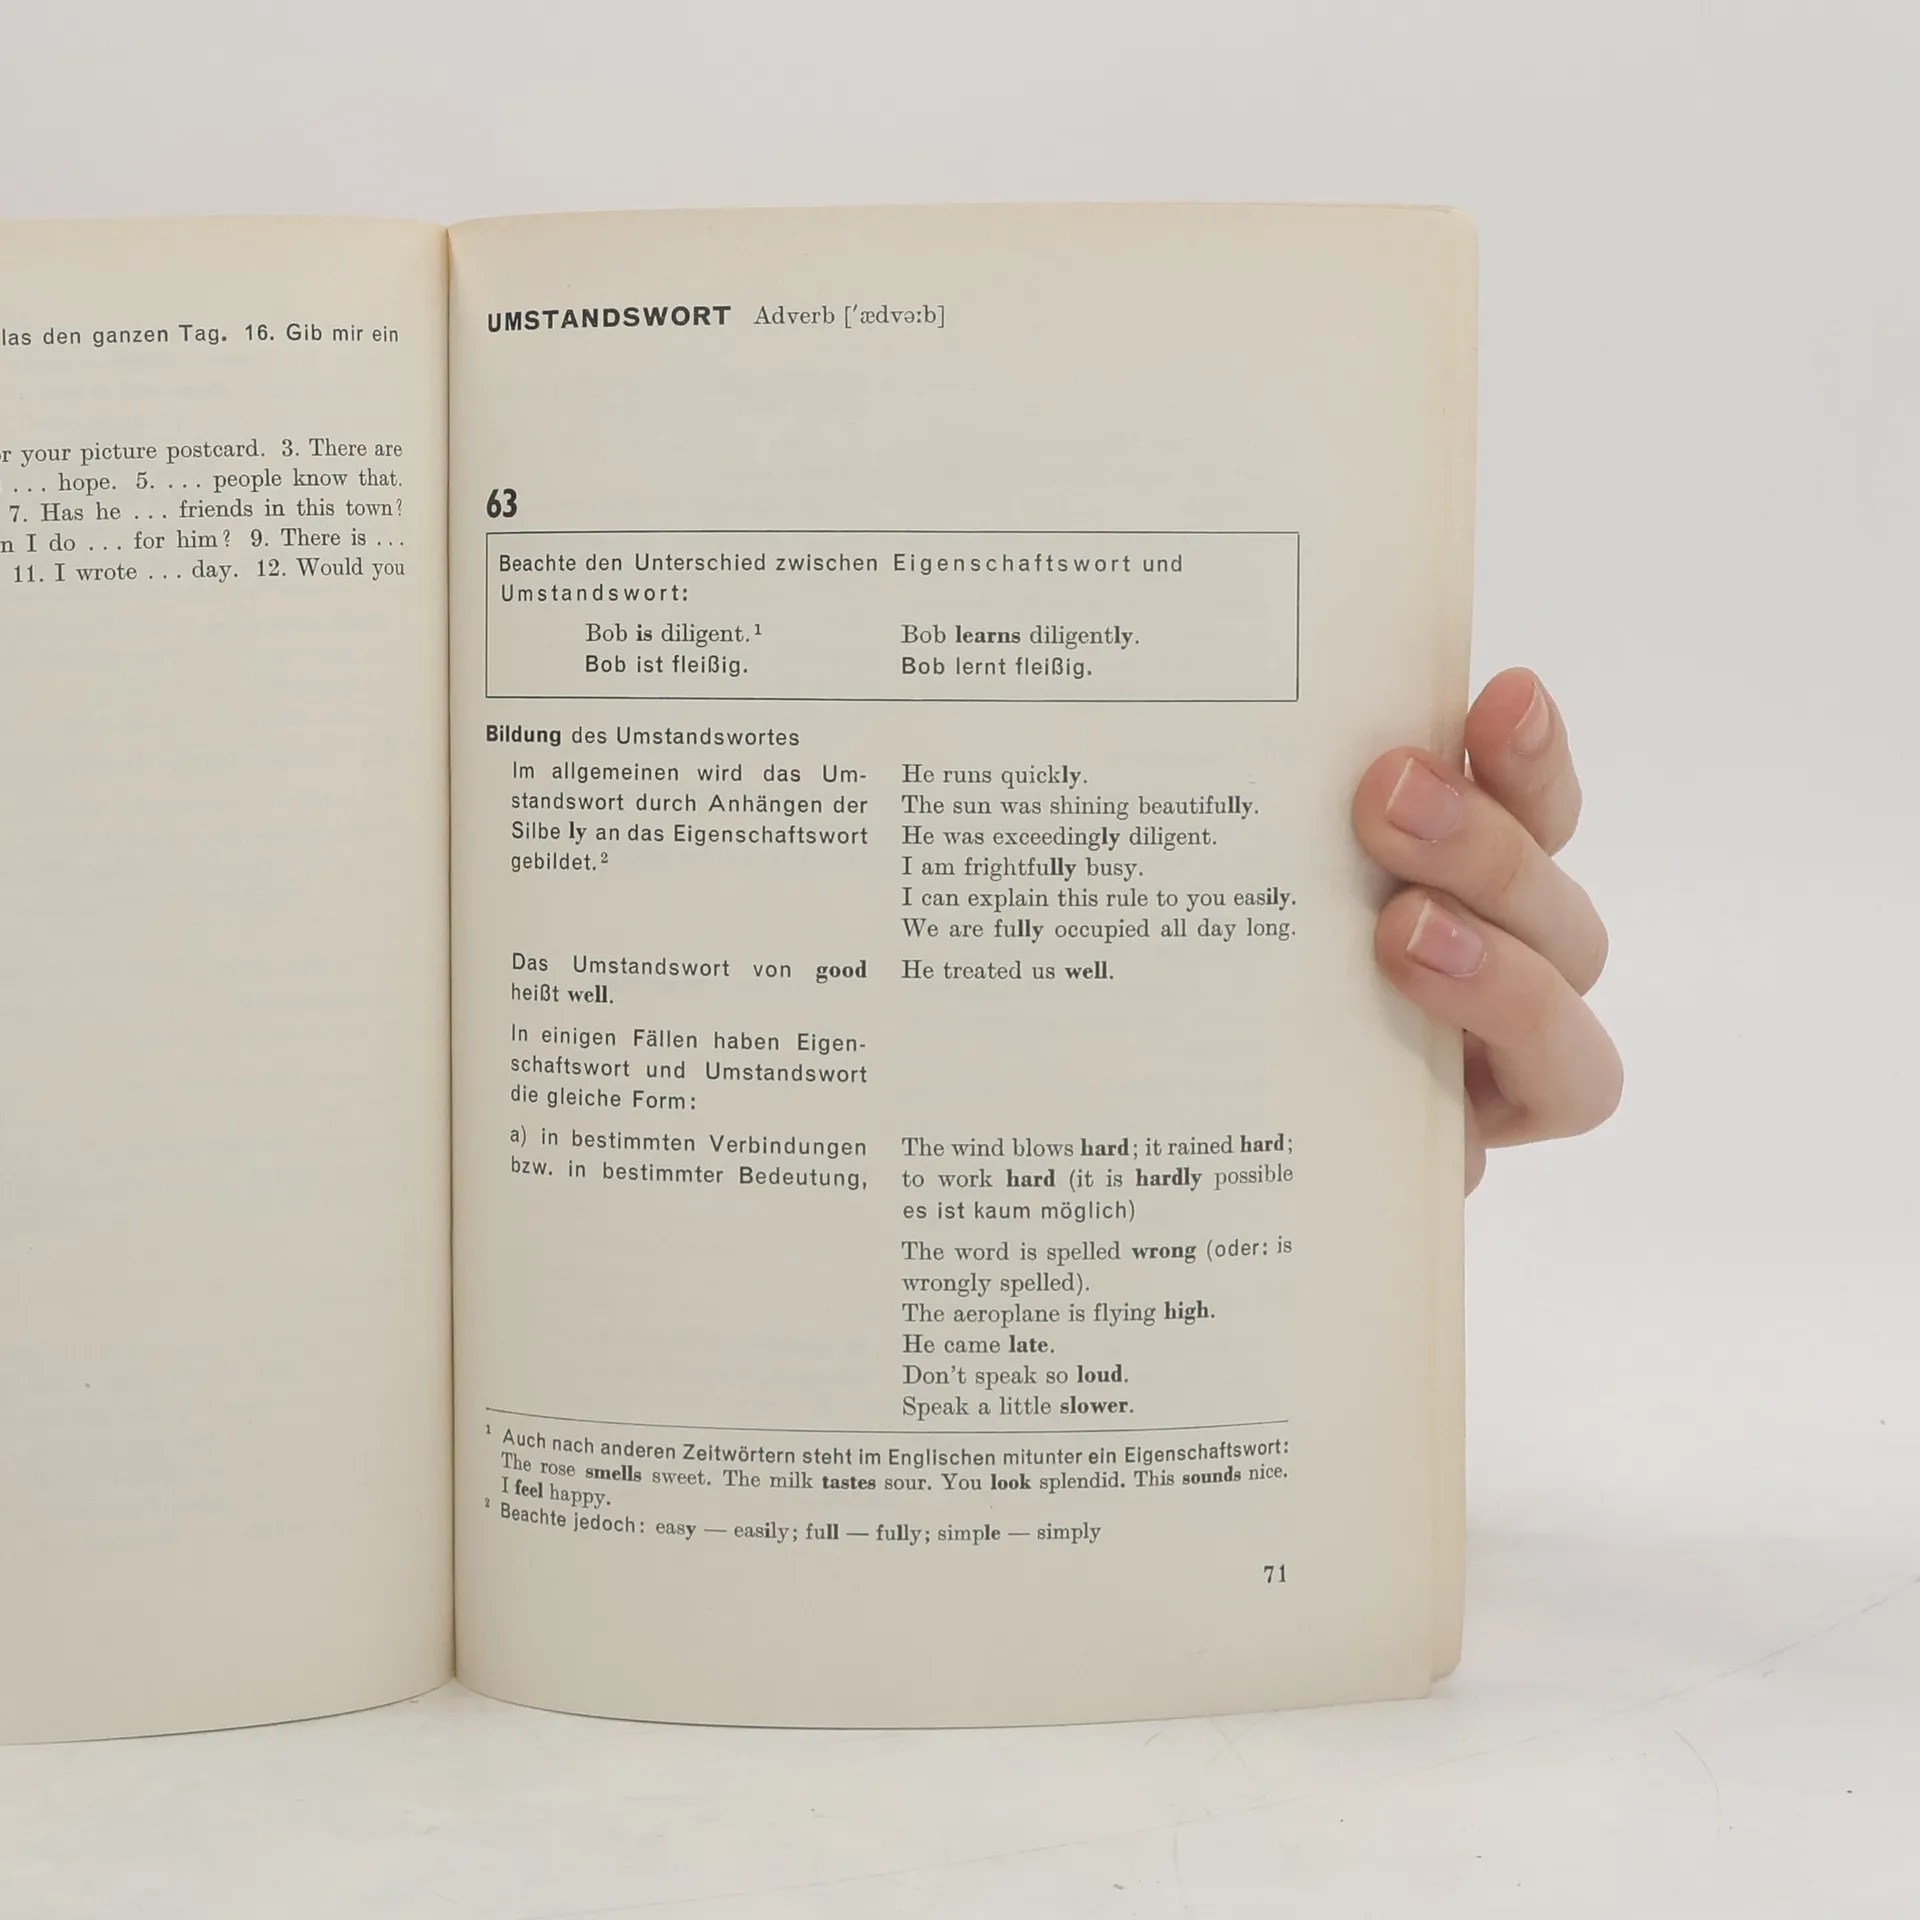 las den ganzen Tag. 16. Gib mir ein
your picture postcard. 3. There are
... hope. 5. ... people know that.
7. Has he ... friends in this town?
I do ... for him? 9. There is ...
11. I wrote ... day. 12. Would you
UMSTANDSWORT Adverb [ˈædvə:b]
63
Beachte den Unterschied zwischen Eigenschaftswort und
Umstandswort:
Bob is diligent.¹ Bob learns diligently.
Bob ist fleißig. Bob lernt fleißig.
Bildung des Umstandswortes
Im allgemeinen wird das Um-
standswort durch Anhängen der
Silbe ly an das Eigenschaftswort
gebildet.²
He runs quickly.
The sun was shining beautifully.
He was exceedingly diligent.
I am frightfully busy.
I can explain this rule to you easily.
We are fully occupied all day long.
Das Umstandswort von good
heißt well.
He treated us well.
In einigen Fällen haben Eigen-
schaftswort und Umstandswort
die gleiche Form:
a) in bestimmten Verbindungen
bzw. in bestimmter Bedeutung,
The wind blows hard; it rained hard;
to work hard (it is hardly possible
es ist kaum möglich)
The word is spelled wrong (oder: is
wrongly spelled).
The aeroplane is flying high.
He came late.
Don't speak so loud.
Speak a little slower.
¹ Auch nach anderen Zeitwörtern steht im Englischen mitunter ein Eigenschaftswort:
The rose smells sweet. The milk tastes sour. You look splendid. This sounds nice.
I feel happy.
² Beachte jedoch: easy — easily; full — fully; simple — simply
71